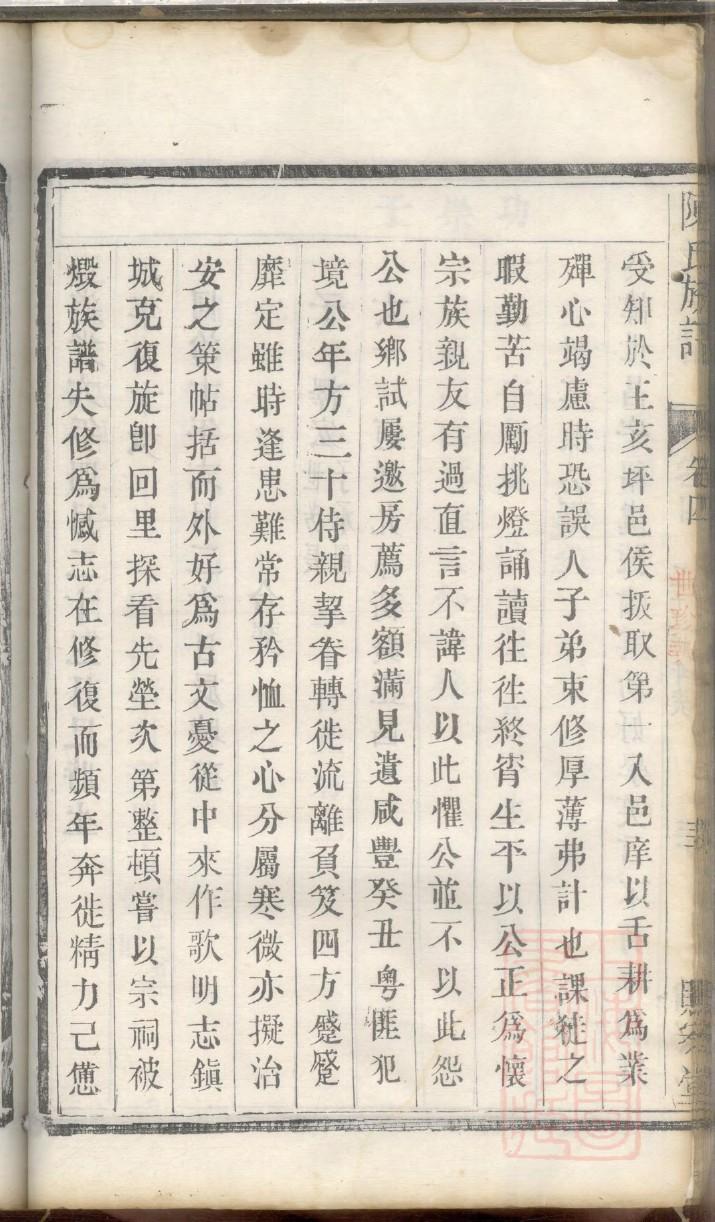 受知於王亥坪邑侯拔取第一入邑庠以舌耕為業
殫心竭慮時恐誤人子弟束修厚薄弗計也課徒之
暇勤苦自勵挑燈誦讀徃徃終宵生平以公正為懷
宗族親友有過直言不諱人以此懼公並不以此怨
公也鄉試屢邀房薦多額滿見遺咸豐癸丑粵匪犯
境公年方三十侍親挈眷轉徙流離負笈四方蹙蹙
靡定雖時逢患難常存矜恤之心分屬寒微亦擬治
安之策帖括而外好為古文憂從中來作歌明志鎮
城克復旋卽回里探看先塋次第整頓嘗以宗祠被
燬族譜失修為憾志在修復而頻年奔徙精力已憊
陳氏族譜
卷四